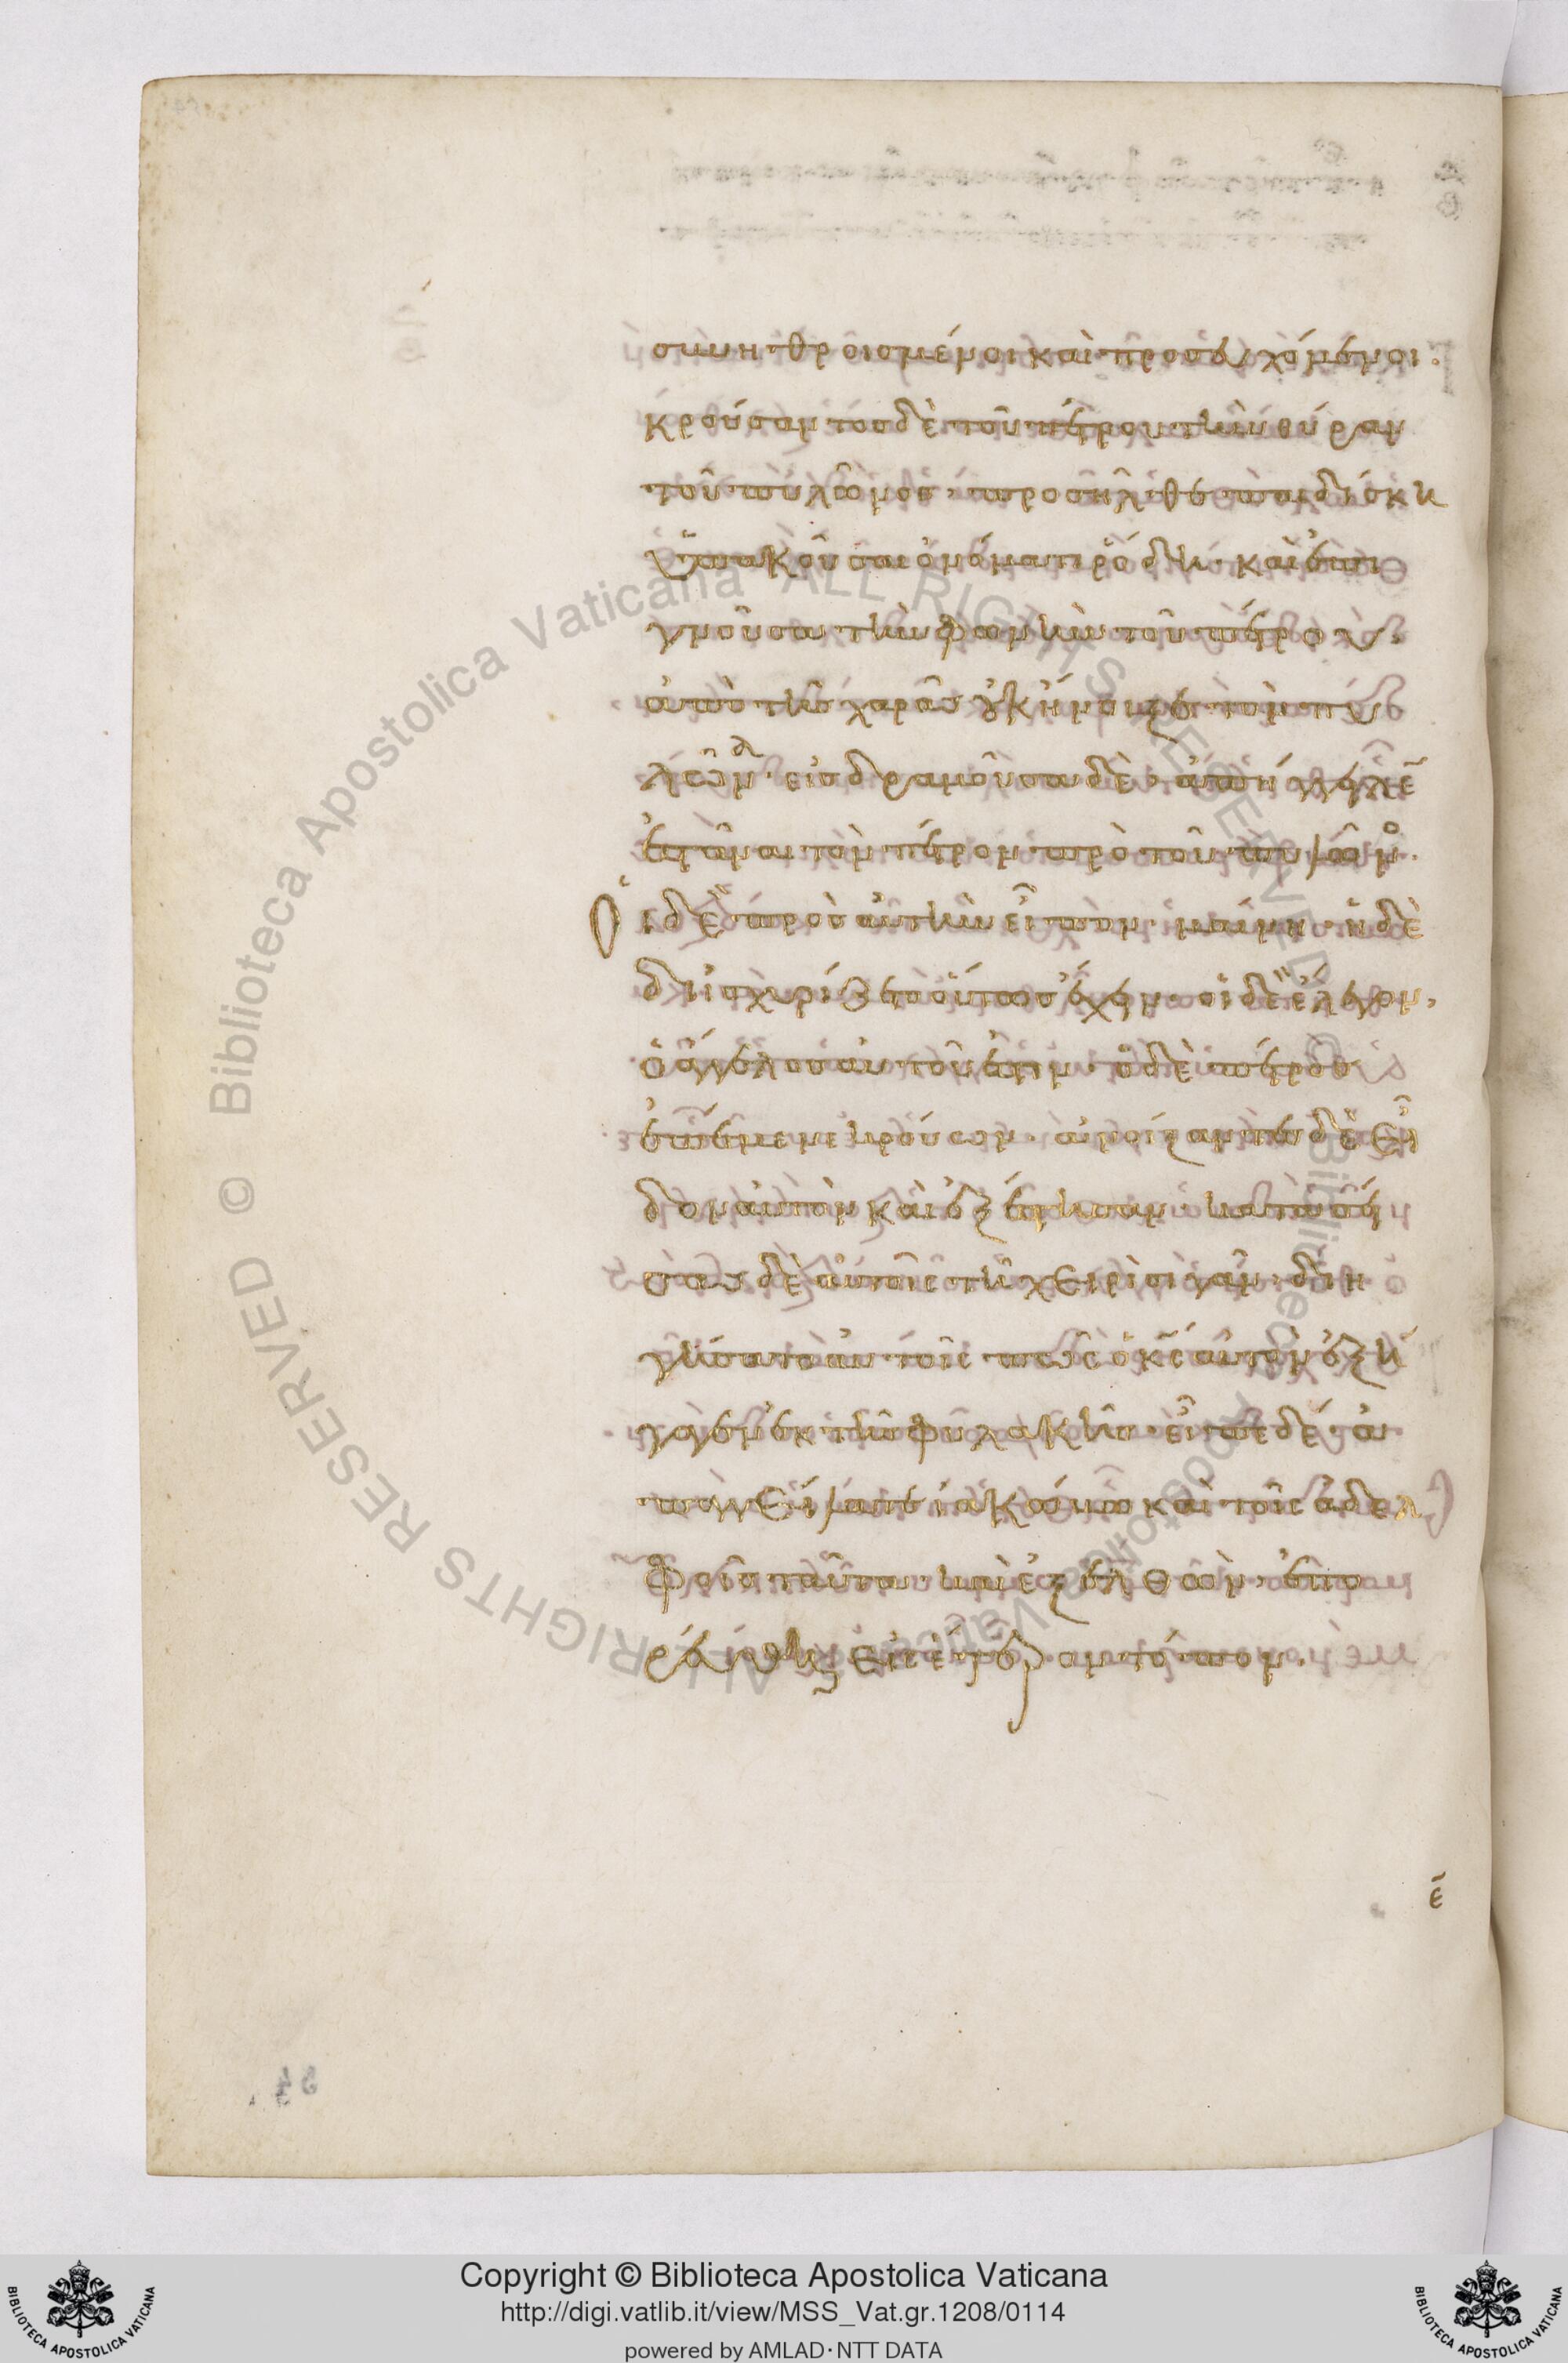 συνηθροισμένοι καὶ προσευχόμενοι.
κρούσαντος δὲ τοῦ πέτρου τὴν θύραν
τοῦ πυλῶνος, προσῆλθε παιδίσκη
ὑπακοῦσαι ὀνόματι ῥόδη. καὶ ἐπι
γνοῦσα τὴν φωνὴν τοῦ πέτρου,
ἀπὸ τῆς χαρᾶς οὐκ ἤνοιξε τὸν πυ
λῶνα. εἰσδραμοῦσα δὲ, ἀπήγγειλεν
ἑστάναι τὸν πέτρον πρὸ τοῦ πυλῶνος.
Οἱ δὲ πρὸς αὐτὴν εἶπον. μαίνη. ἡ δὲ
διϊσχυρίζετο οὕτως ἔχειν. οἱ δὲ ἔλεγον,
ὁ ἄγγελος αὐτοῦ ἐστιν. ὁ δὲ πέτρος
ἐπέμενε κρούων. ἀνοίξαντες δὲ εἶ
δον αὐτὸν καὶ ἐξέστησαν. κατασεί
σας δὲ αὐτοῖς τῇ χειρὶ σιγᾶν. διη
γήσατο αὐτοῖς πῶς ὁ κς αὐτὸν ἐξή
γαγεν ἐκ τῆς φυλακῆς. εἶπε δέ. ἀ
παγγείλατε ἰακώβω καὶ τοῖς ἀδελ
φοῖς ταῦτα. καὶ ἐξελθὼν. ἐπο
ρεύθη εἰς ἕτερον τόπον.
Copyright © Biblioteca Apostolica Vaticana
http://digi.vatlib.it/view/MSS_Vat.gr.1208/0114
powered by AMLAD·NTT DATA